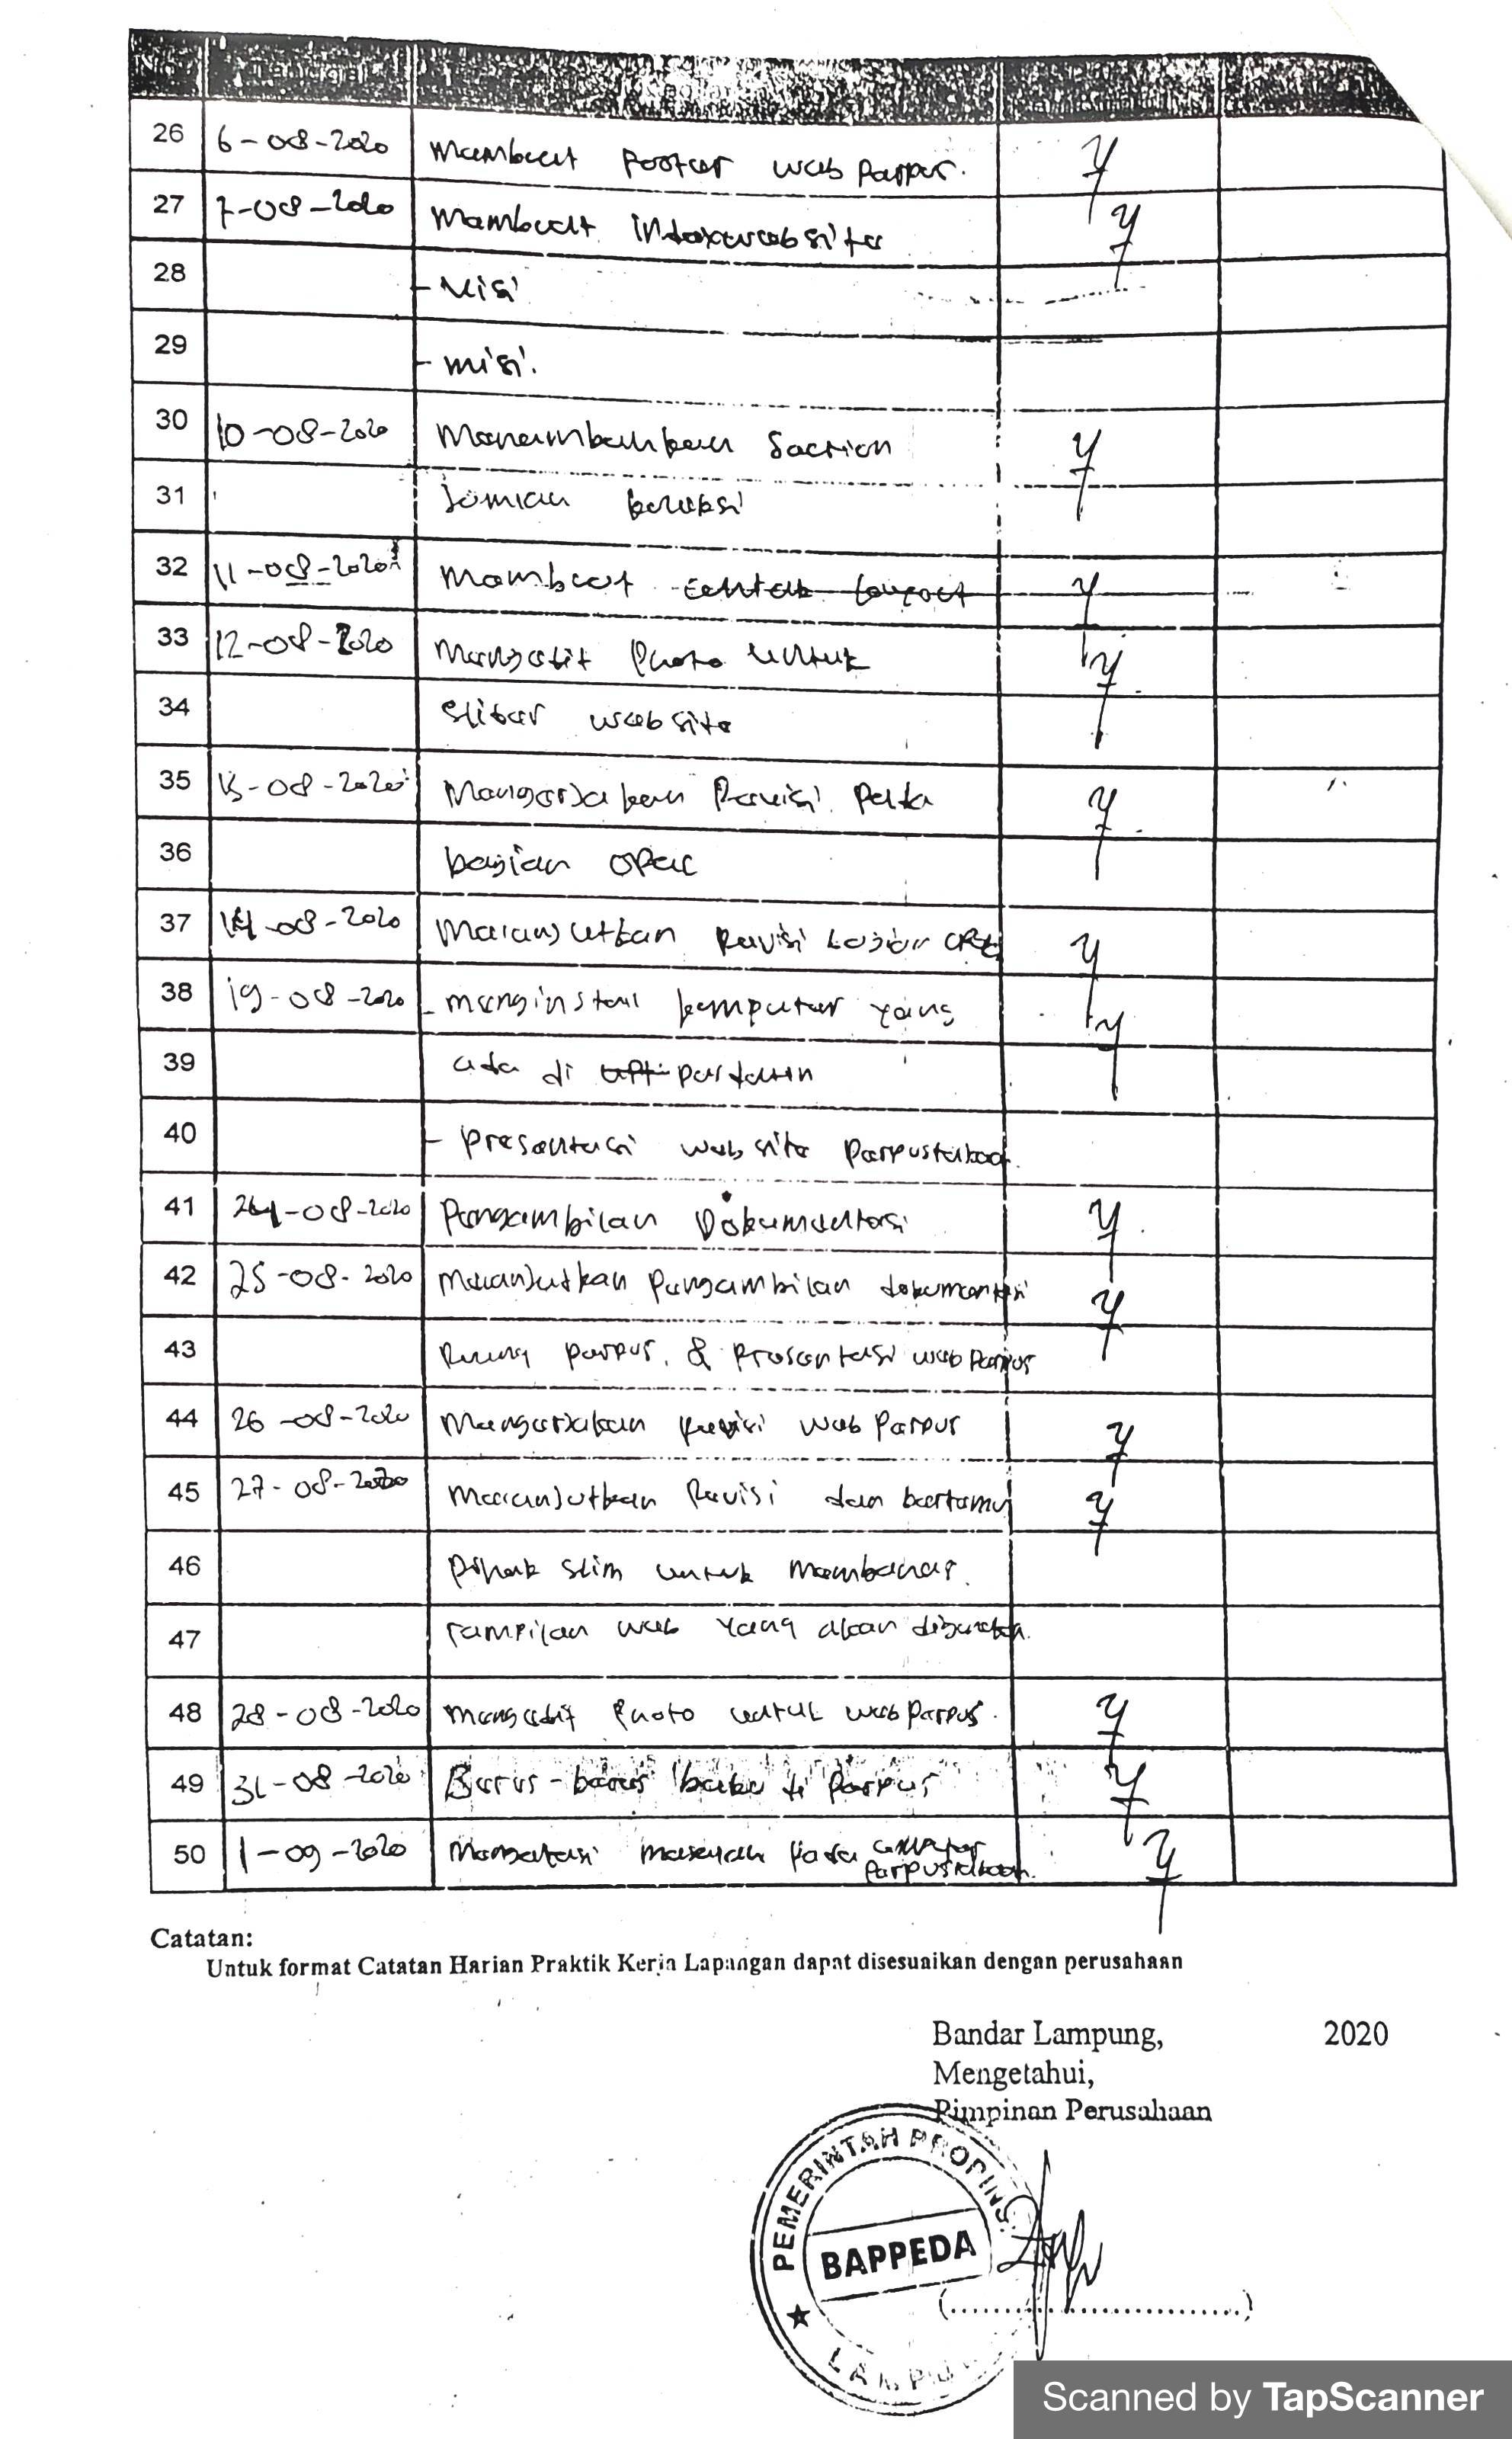 No Tanggal
26 6-08-2020 Membuat Footer web Perpus.
27 7-08-2020 Membuat index website
28 - Visi
29 - misi.
30 10-08-2020 Menambahkan Section
31 Jumlah koleksi
32 11-08-2020 Membuat contak layout
33 12-08-2020 Mengedit Photo untuk
34 slider website
35 13-08-2020 Mengerjakan Revisi Pada
36 bagian opac
37 14-08-2020 Melanjutkan Revisi bagian OPAC
38 19-08-2020 - menginstal komputer yang
39 ada di perpustakaan
40 - presentasi web site Perpustakaan.
41 24-08-2020 Pengambilan Dokumentasi
42 25-08-2020 Melanjutkan pengambilan dokumentasi
43 Ruang perpus. & presentasi web Perpus
44 26-08-2020 Mengerjakan Revisi web Perpus
45 27-08-2020 Melanjutkan Revisi dan bertemu
46 pihak slim untuk membahas.
47 tampilan web yang akan digunakan.
48 28-08-2020 mengedit Photo untuk web perpus.
49 31-08-2020 Beres-beres buku di Perpus
50 1-09-2020 Mengatasi masalah pada
Perpustakaan.
Catatan:
Untuk format Catatan Harian Praktik Kerja Lapangan dapat disesuaikan dengan perusahaan
Bandar Lampung, 2020
Mengetahui,
Pimpinan Perusahaan
PEMERINTAH PROPINSI
BAPPEDA
LAMPUNG
(..............................)
Scanned by TapScanner